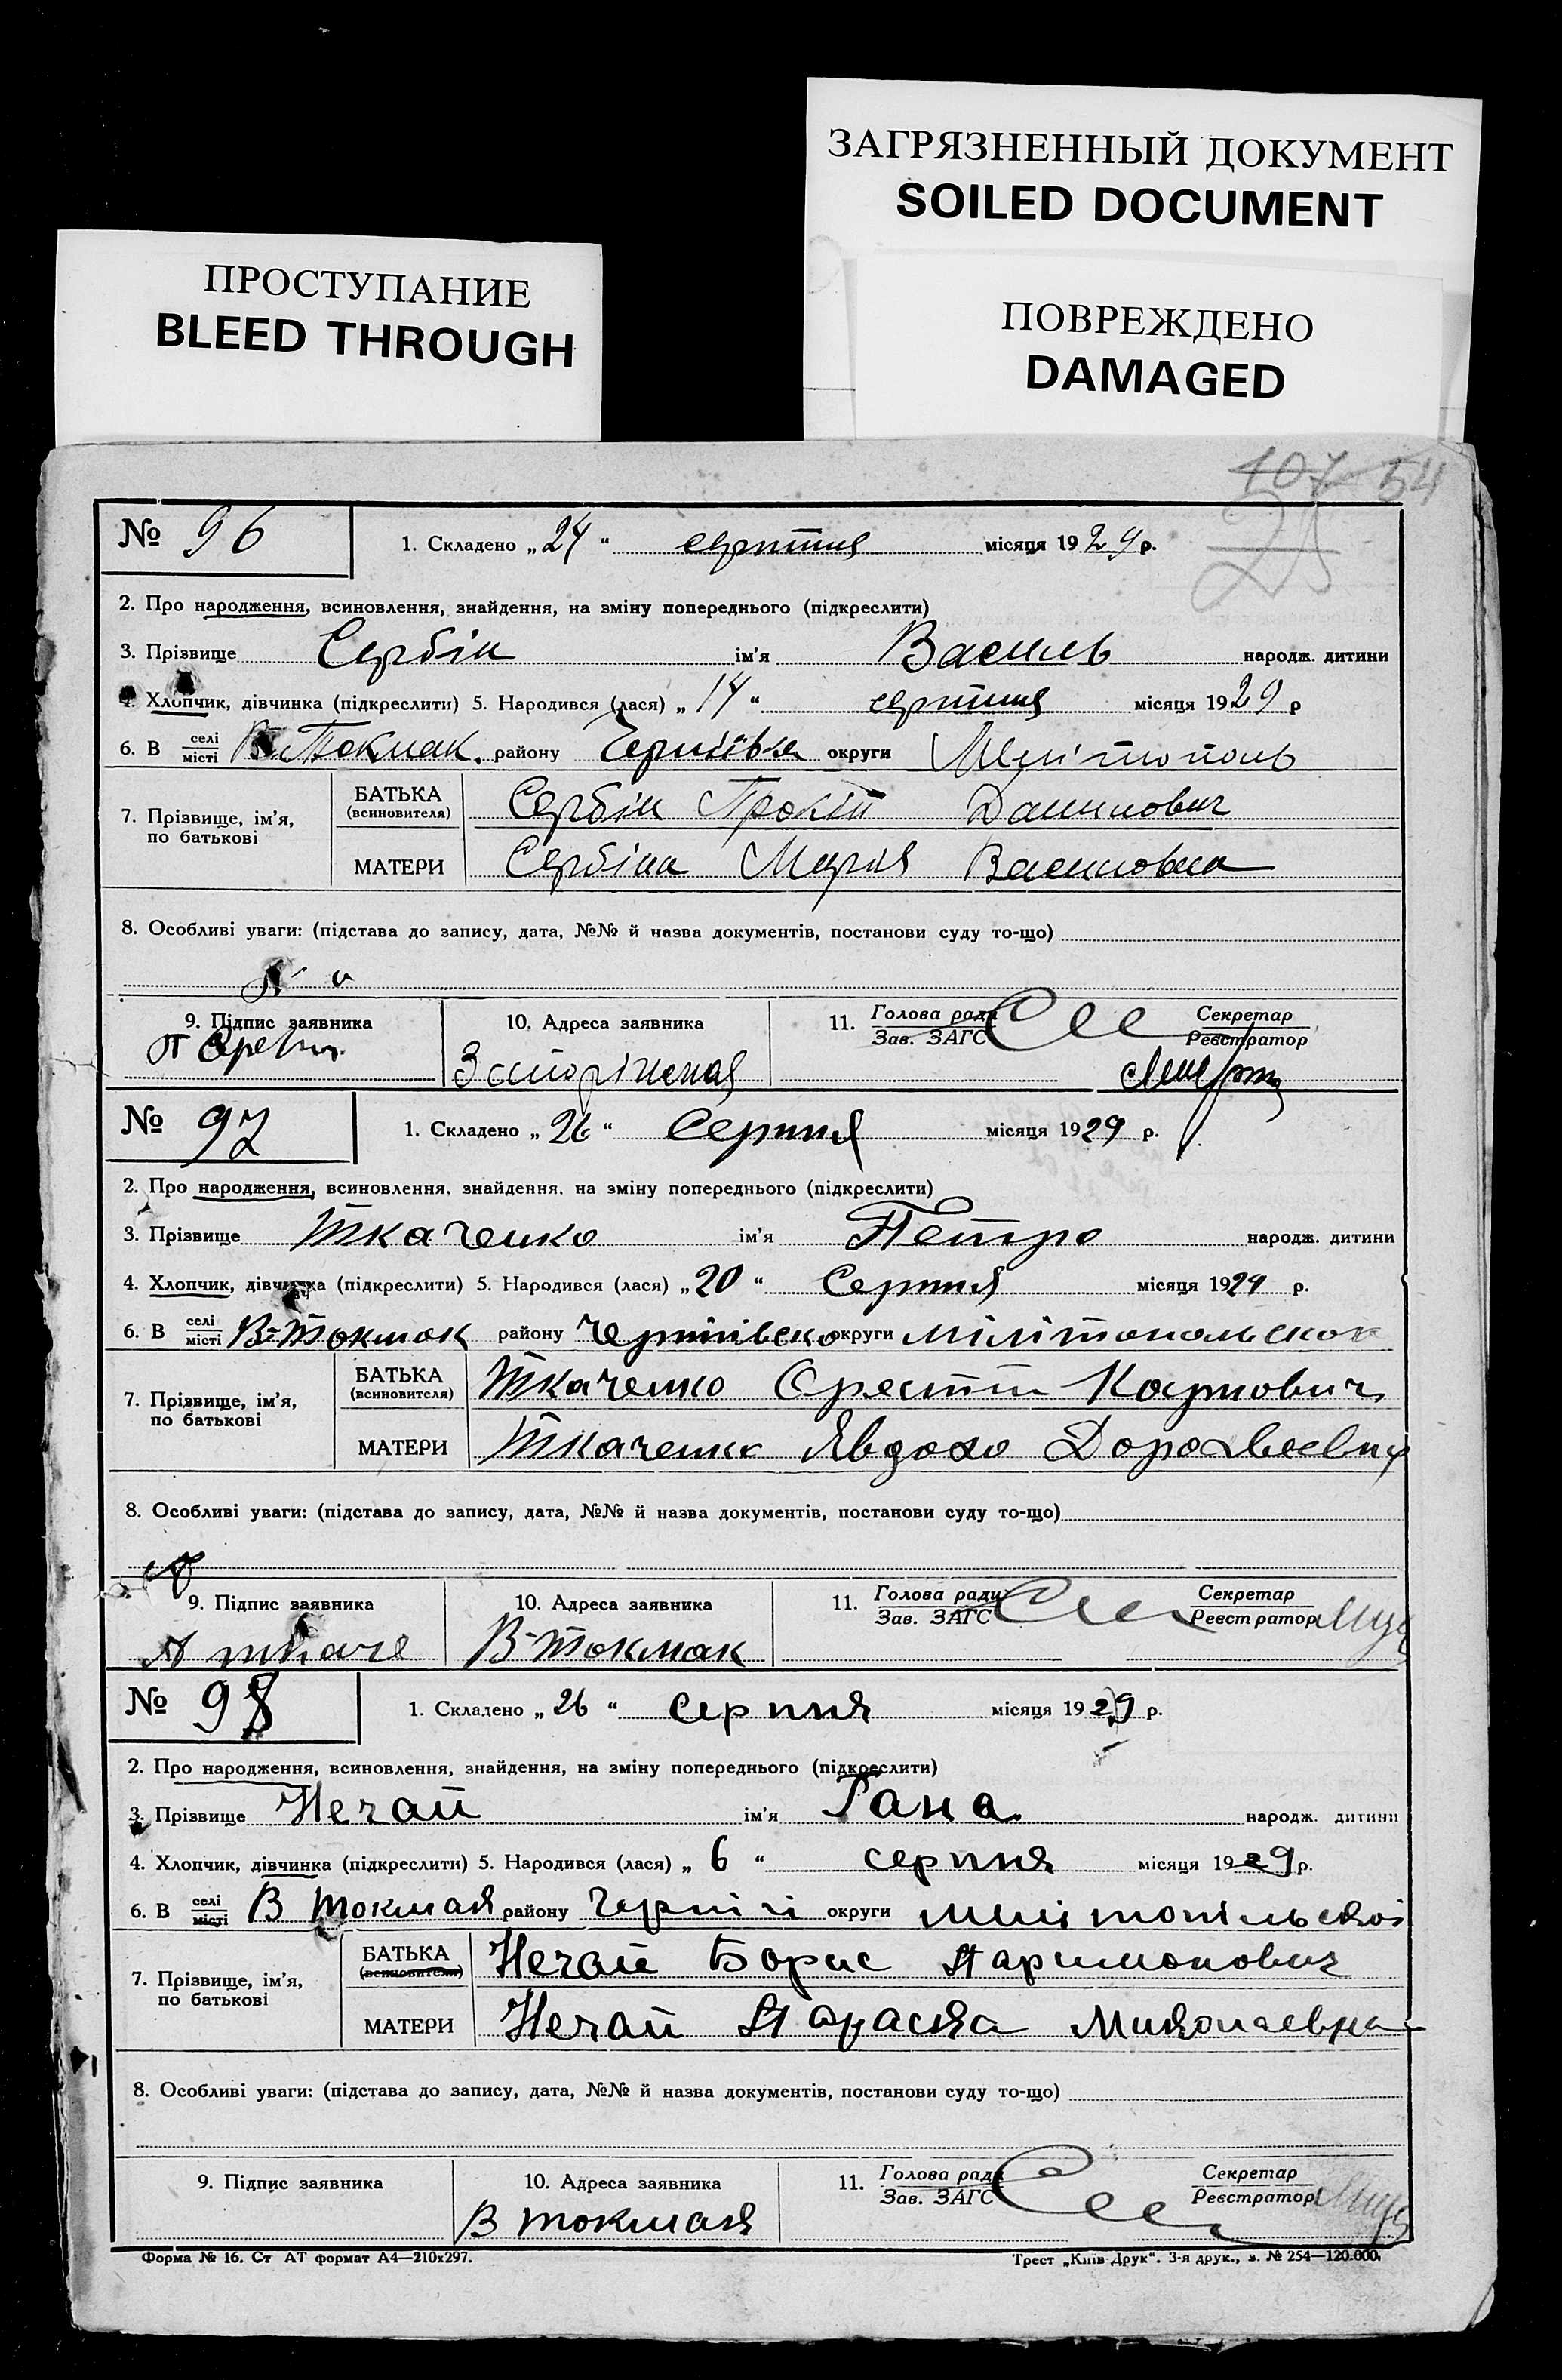 ЗАГРЯЗНЕННЫЙ ДОКУМЕНТ
SOILED DOCUMENT
ПРОСТУПАНИЕ
BLEED THROUGH
ПОВРЕЖДЕНО
DAMAGED
107 54
25
№ 96 1. Складено „24“ серпня місяця 1929 р.
2. Про народження, всиновлення, знайдення, на зміну попереднього (підкреслити)
3. Прізвище Сербін ім'я Василь народж. дитини
4. Хлопчик, дівчинка (підкреслити) 5. Народився (лася) „14“ серпня місяця 1929 р
6. В селі місті В-Токмак району Чернівка округи Мелітополь
7. Прізвище, ім'я, по батькові
БАТЬКА (всиновителя) Сербін Прокіп Данилович
МАТЕРИ Сербіна Марія Василовна
8. Особливі уваги: (підстава до запису, дата, №№ й назва документів, постанови суду то-що)
9. Підпис заявника
10. Адреса заявника
11. Голова ради Зав. ЗАГС Секретар Реєстратор
№ 97 1. Складено „26“ Серпня місяця 1929 р.
2. Про народження, всиновлення, знайдення, на зміну попереднього (підкреслити)
3. Прізвище Ткаченко ім'я Петро народж. дитини
4. Хлопчик, дівчинка (підкреслити) 5. Народився (лася) „20“ Серпня місяця 1929 р.
6. В селі місті В-Токмок району округи
7. Прізвище, ім'я, по батькові
БАТЬКА (всиновителя) Ткаченко Орестт Карпович
МАТЕРИ Ткаченко Явдохо
8. Особливі уваги: (підстава до запису, дата, №№ й назва документів, постанови суду то-що)
9. Підпис заявника
10. Адреса заявника В-Токмак
11. Голова ради Зав. ЗАГС Секретар Реєстратор
№ 98 1. Складено „26“ серпня місяця 1929 р.
2. Про народження, всиновлення, знайдення, на зміну попереднього (підкреслити)
3. Прізвище Нечай ім'я Гана народж. дитини
4. Хлопчик, дівчинка (підкреслити) 5. Народився (лася) „6“ серпня місяця 1929 р.
6. В селі місті В Токмак району округи
7. Прізвище, ім'я, по батькові
БАТЬКА (всиновителя) Нечай Борис Паримонович
МАТЕРИ Нечай Параска Миколаевна
8. Особливі уваги: (підстава до запису, дата, №№ й назва документів, постанови суду то-що)
9. Підпис заявника
10. Адреса заявника В Токмак
11. Голова ради Зав. ЗАГС Секретар Реєстратор
Форма № 16. Ст АТ формат А4—210х297.
Трест „Київ-Друк“. 3-я друк., з. № 254—120.000.